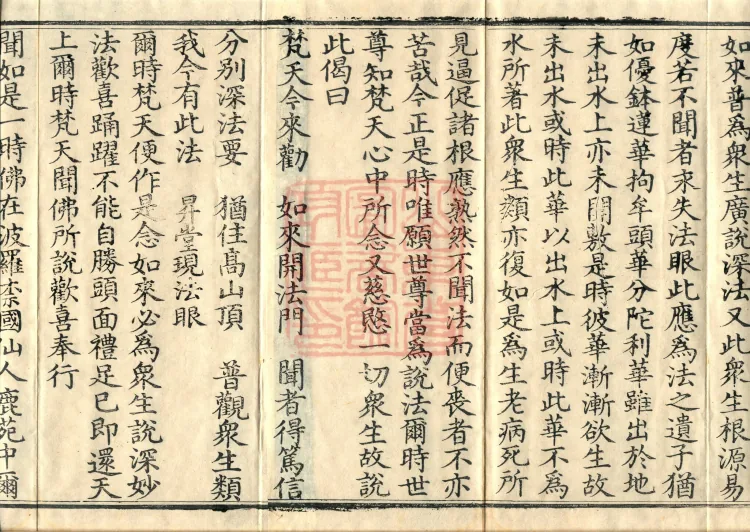 如來普為衆生廣說深法又此衆生根源易
度若不聞者永失法眼此應為法之遺子猶
如優鉢蓮華拘牟頭華分陀利華雖出於地
未出水上亦未開敷是時彼華漸漸欲生故
未出水或時此華以出水上或時此華不為
水所著此衆生類亦復如是為生老病死所
見逼促諸根應熟然不聞法而便喪者不亦
苦哉今正是時唯願世尊當為說法爾時世
尊知梵天心中所念又慈愍一切衆生故說
此偈曰
梵天今來勸　如來開法門　聞者得篤信
分別深法要　猶住高山頂　普觀衆生類
我今有此法　昇堂現法眼
爾時梵天便作是念如來必為衆生說深妙
法歡喜踊躍不能自勝頭面禮足已即還天
上爾時梵天聞佛所說歡喜奉行
聞如是一時佛在波羅柰國仙人鹿苑中爾